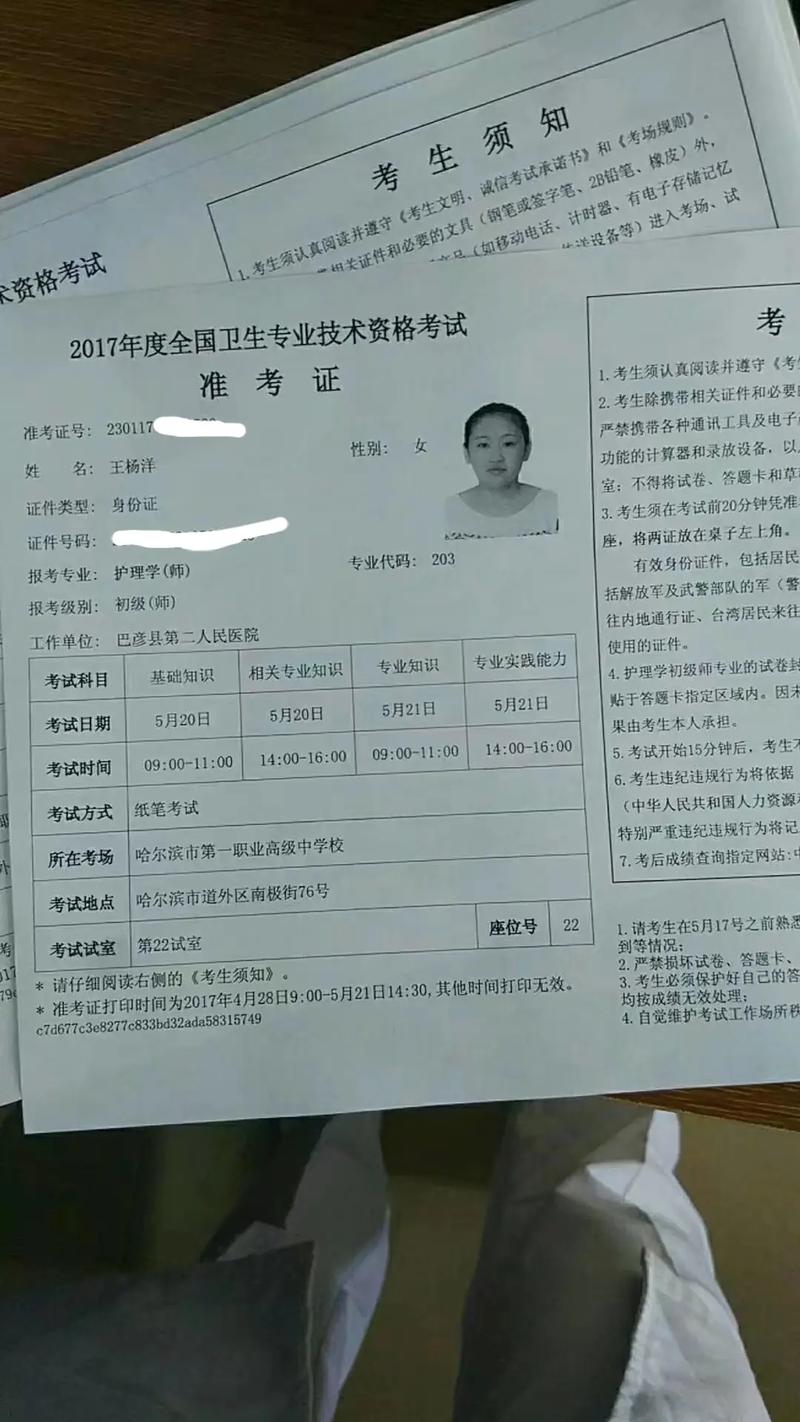 考生须知
1.考生须认真阅读并遵守《考生文明、诚信考试承诺书》和《考场规则》。
相关证件和必要的文具（钢笔或签字笔、2B铅笔、橡皮）外，
（如移动电话、计时器、有电子存储记忆
等）进入考场、试
术资格考试
2017年度全国卫生专业技术资格考试
准考证
准考证号: 230117
姓 名: 王杨洋
性别: 女
证件类型: 身份证
证件号码:
报考专业: 护理学(师)
专业代码: 203
报考级别: 初级(师)
工作单位: 巴彦县第二人民医院
考试科目 基础知识 相关专业知识 专业知识 专业实践能力
考试日期 5月20日 5月20日 5月21日 5月21日
考试时间 09:00-11:00 14:00-16:00 09:00-11:00 14:00-16:00
考试方式 纸笔考试
所在考场 哈尔滨市第一职业高级中学校
考试地点 哈尔滨市道外区南极街76号
考试试室 第22试室 座位号 22
* 请仔细阅读右侧的《考生须知》。
* 准考证打印时间为2017年4月28日9:00-5月21日14:30,其他时间打印无效。
c7d677c3e8277c833bd32ada58315749
考
1.考生须认真阅读并遵守《考
2.考生除携带相关证件和必要
严禁携带各种通讯工具及电子
功能的计算器和录放设备，以
室；不得将试卷、答题卡和草
3.考生须在考试前20分钟凭准
座，将两证放在桌子左上角。
有效身份证件，包括居民
括解放军及武警部队的军（警
往内地通行证、台湾居民来往
使用的证件。
4.护理学初级师专业的试卷封
贴于答题卡指定区域内。因未
果由考生本人承担。
5.考试开始15分钟后，考生不
6.考生违纪违规行为将依据
（中华人民共和国人力资源和
特别严重违纪违规行为将记
7.考后成绩查询指定网站:中
1.请考生在5月17号之前熟悉
到等情况；
2.严禁损坏试卷、答题卡、
3.考生必须保护好自己的答
均按成绩无效处理；
4.自觉维护考试工作场所秩